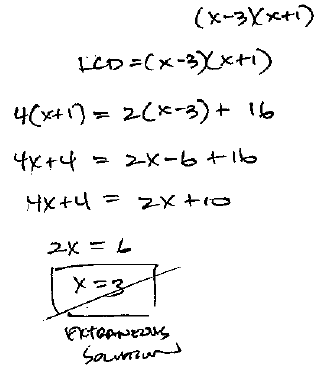 (x-3)(x+1)
LCD = (x-3)(x+1)
4(x+1) = 2(x-3) + 16
4x+4 = 2x-6+16
4x+4 = 2x+10
2x = 6
x = 3
EXTRANEOUS
SOLUTION